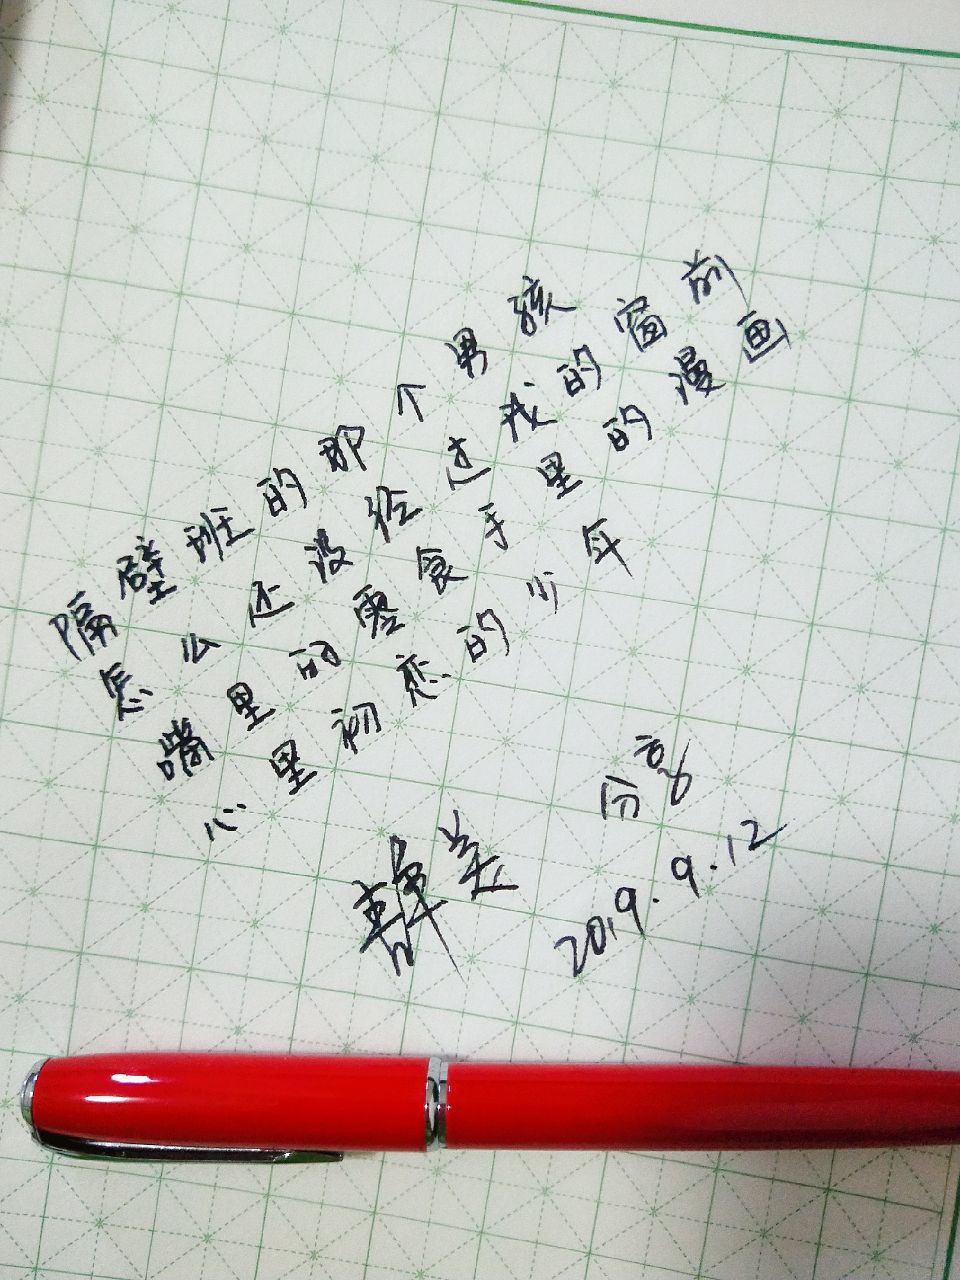 隔壁班的那个男孩
怎么还没给过我的窗前
嘴里的零食手里的漫画
心里初恋的少年
分享
2019.9.12